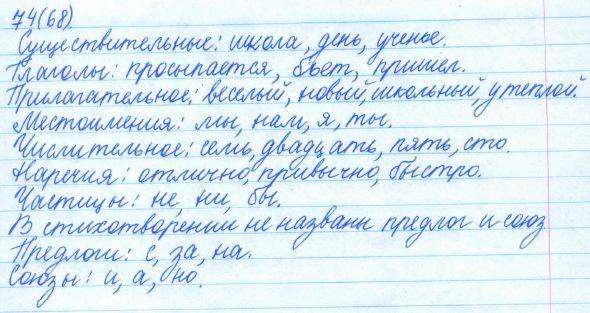 74(68).
Существительные: школа, день, ученье.
Глаголы: просыпается, бьет, пришел.
Прилагательное: веселый, новый, школьный, утеплой.
Местоимения: мы, нам, я, ты.
Числительное: семь, двадцать, пять, сто.
Наречия: отлично, привычно, быстро.
Частицы: не, ни, бы.
В стихотворении не названы предлог и союз
Предлоги: с, за, на.
Союзы: и, а, но.